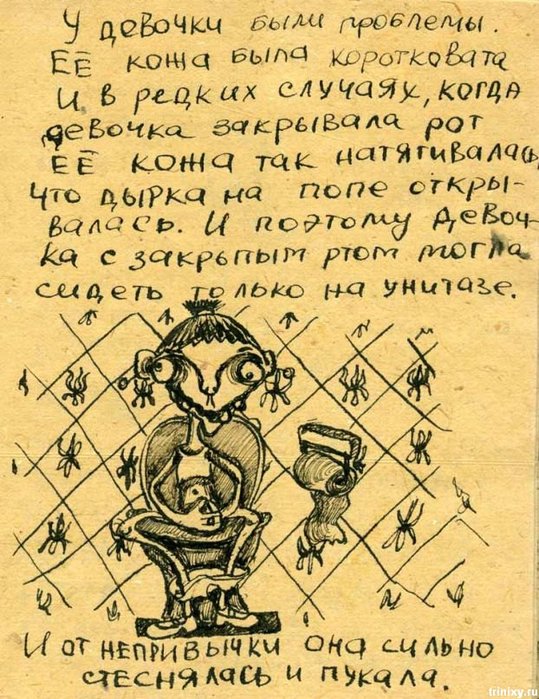 У девочки были проблемы.
ЕЁ кожа была коротковата
И в редких случаях, когда
девочка закрывала рот
ЕЁ кожа так натягивалась,
что дырка на попе откры-
валась. И поэтому девоч-
ка с закрытым ртом могла
сидеть только на унитазе.
И от непривычки она сильно
стеснялась и пукала.
trinixy.ru